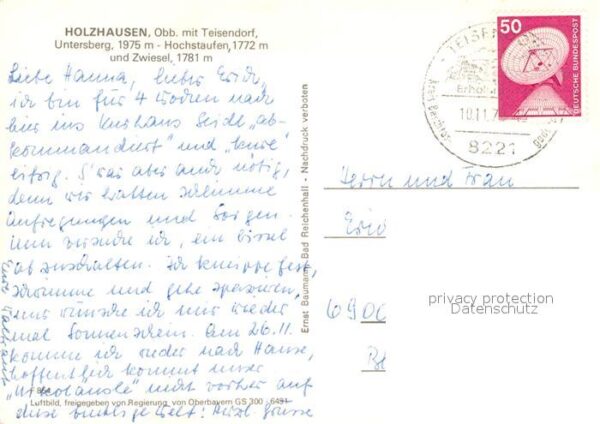 HOLZHAUSEN, Obb. mit Teisendorf,
Untersberg, 1975 m - Hochstaufen, 1772 m
und Zwiesel, 1781 m
Liebe Hanna, lieber Erich,
ich bin für 4 Wochen nach
hier ins Kurhaus Seidl "ab-
kommandiert" und "kure"
eifrig. S'war aber auch nötig,
denn wir hatten schlimme
Aufregungen und Sorgen.
Nun versuche ich, ein bissel
abzuschalten. Ich kneippe fest,
schwimme und gehe spazieren,
nur wünsche ich mir wieder
mal Sonnenschein. Am 26.11.
komme ich wieder nach Hause,
hoffentlich kommt unser
"Nikolausle" nicht vorher auf
diese bucklige Welt! Herzl. Grüsse
Eure Waltraut
Luftbild, freigegeben von Regierung von Oberbayern GS 300
Ernst Baumann, Bad Reichenhall - Nachdruck verboten
50
DEUTSCHE BUNDESPOST
10.11.7
8221
Herrn und Frau
Erich
690
privacy protection
Datenschutz